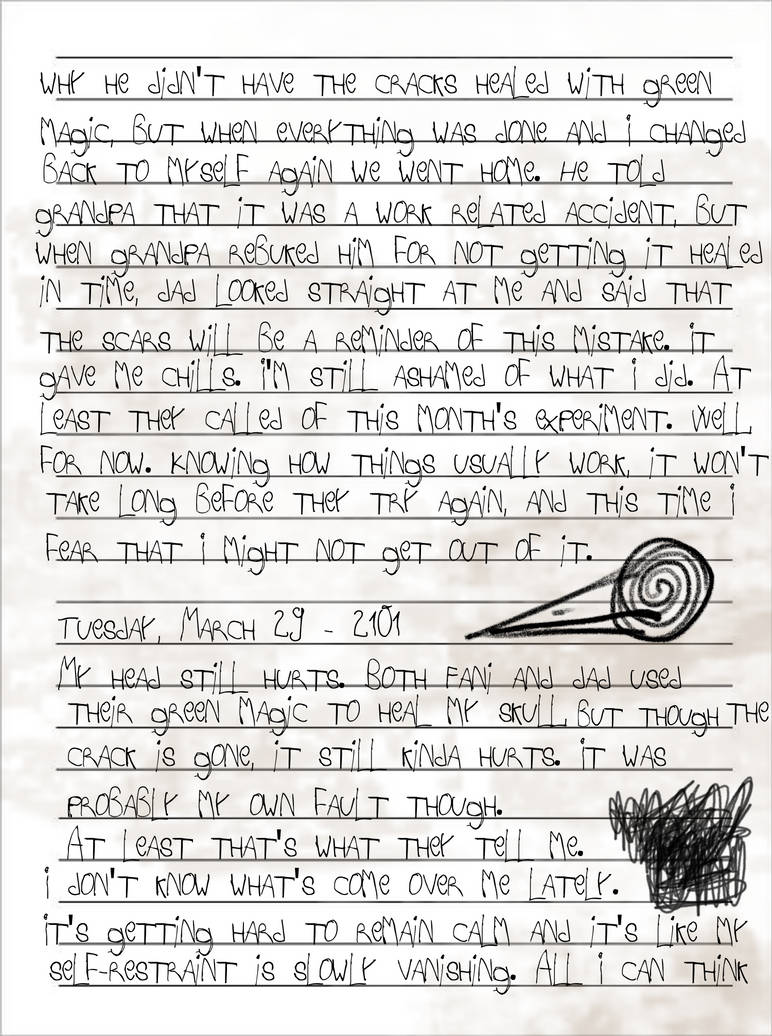 why he didn't have the cracks healed with green
magic, but when everything was done and i changed
back to myself again we went home. He told
grandpa that it was a work related accident, but
when grandpa rebuked him for not getting it healed
in time, dad looked straight at me and said that
the scars will be a reminder of this mistake. it
gave me chills. i'm still ashamed of what i did. At
least they called of this month's experiment. well
for now. knowing how things usually work, it won't
take long before they try again, and this time i
fear that i might not get out of it.
Tuesday, March 29 - 2101
My head still hurts. Both Fani and dad used
their green magic to heal my skull but though the
crack is gone, it still kinda hurts. it was
probably my own fault though.
At least that's what they tell me.
i don't know what's come over me lately.
it's getting hard to remain calm and it's like my
self-restraint is slowly vanishing. All i can think